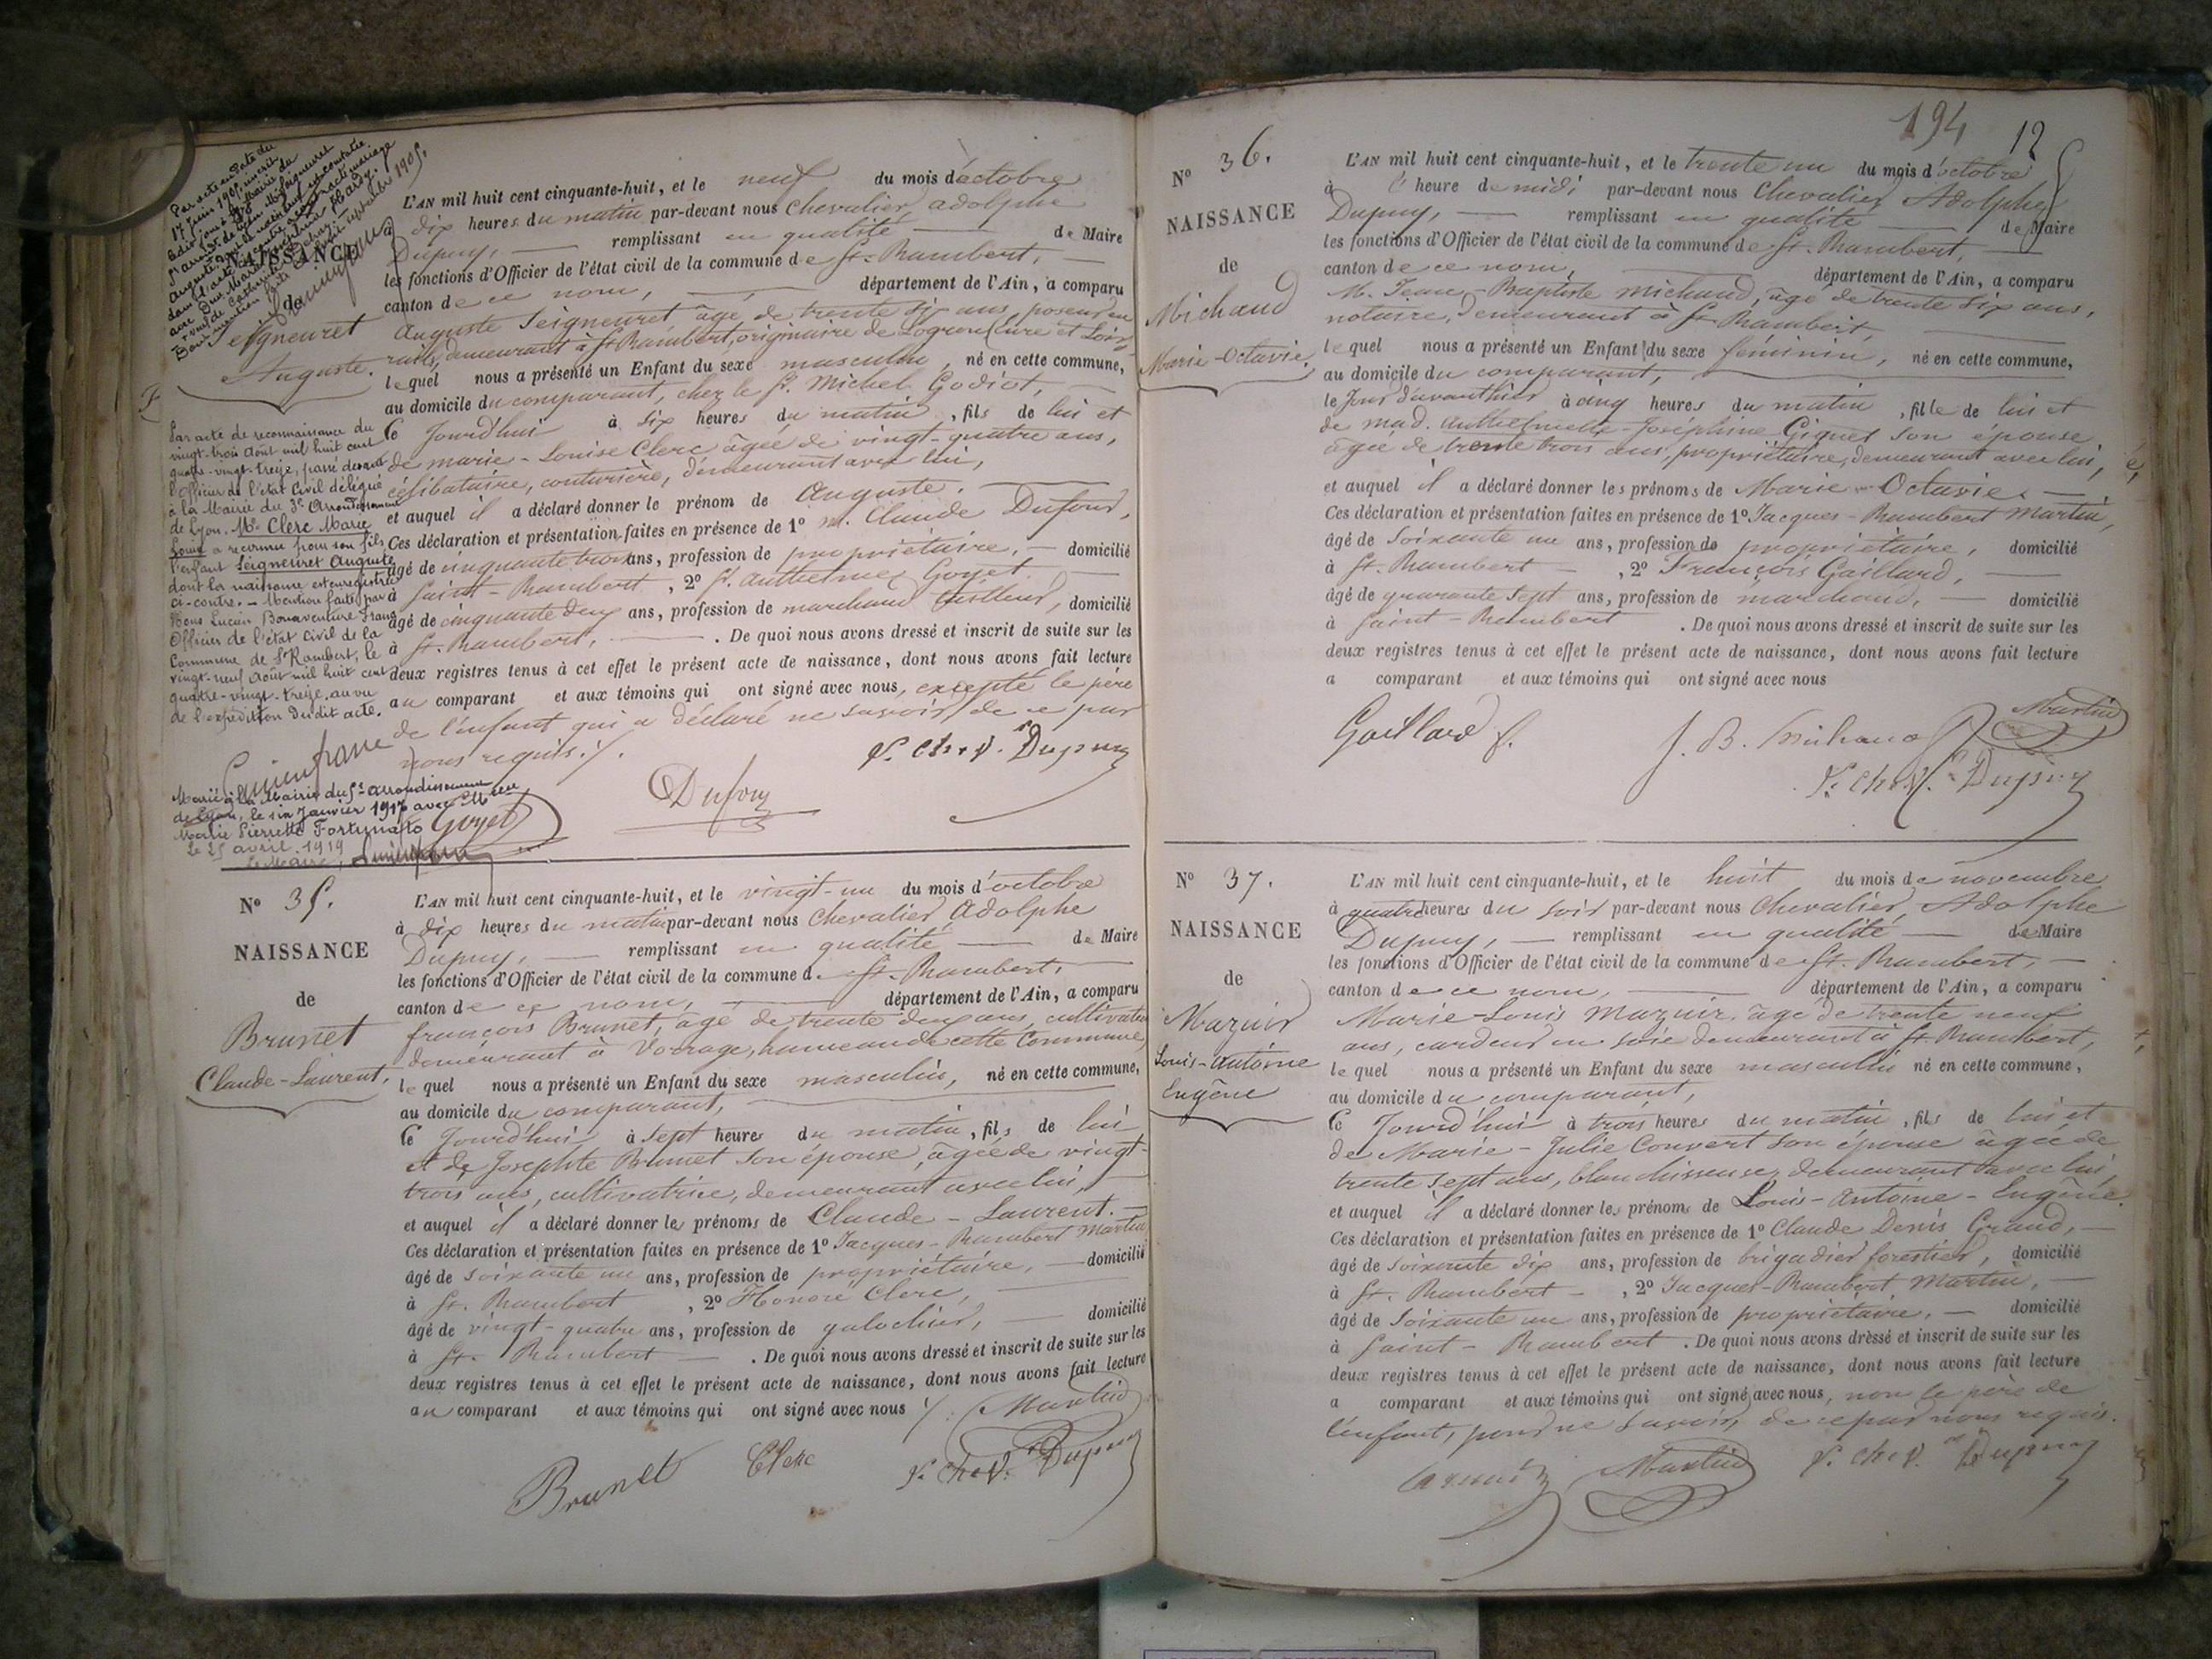 Par acte en date du
17 juin 1905, inscrit
NAISSANCE
de
Seigneuret
Auguste.
Par acte de reconnaissance du
vingt-trois Août mil huit cent
quatre-vingt-treize, passé devant
l'Officier de l'état civil délégué
à la Mairie du 3e Arrondissement
de Lyon. Mlle Clerc Marie
Louise a reconnu pour son fils
l'enfant Seigneuret Auguste
dont la naissance est enregistrée
ci-contre. - Mention faite par
Nous Lucien Bonaventure Franc
Officier de l'état Civil de la
Commune de St Rambert, le
vingt-neuf Août mil huit cent
quatre-vingt-treize, au vu
de l'expédition dudit acte.
Marié à la Mairie du 5e arrondissement
de Lyon, le six Janvier 1917 avec
Marie Pierrette Fortunato
Le 25 avril 1919
Le Maire,
L'AN mil huit cent cinquante-huit, et le neuf du mois d'octobre
à dix heures du matin par-devant nous Chevalier Adolphe
Dupuy, remplissant en qualité de Maire
les fonctions d'Officier de l'état civil de la commune de St. Rambert,
canton de ce nom, département de l'Ain, a comparu
Auguste Seigneuret âgé de trente six ans, poseur en
rails, demeurant à St Rambert, originaire de
lequel nous a présenté un Enfant du sexe masculin, né en cette commune,
au domicile du comparant, chez le Sr. Michel Godiot,
Ce jourd'hui à six heures du matin, fils de lui et
de marie-Louise Clerc âgée de vingt-quatre ans,
célibataire, couturière, demeurant avec lui,
et auquel il a déclaré donner le prénom de Auguste.
Ces déclaration et présentation faites en présence de 1° M. Claude Dufour,
âgé de cinquante trois ans, profession de propriétaire, domicilié
à Saint-Rambert, 2° Sr. Anthelme Goyet
âgé de cinquante deux ans, profession de marchand tailleur, domicilié
à St. Rambert, . De quoi nous avons dressé et inscrit de suite sur les
deux registres tenus à cet effet le présent acte de naissance, dont nous avons fait lecture
au comparant et aux témoins qui ont signé avec nous, excepté le père
de l'enfant qui a déclaré ne savoir, de ce par
nous requis ./.
V. Chev. Dupuy
Dufour
Goyet
N° 35.
NAISSANCE
de
Brunet
Claude-Laurent,
L'AN mil huit cent cinquante-huit, et le vingt-un du mois d'octobre
à dix heures du matin par-devant nous Chevalier Adolphe
Dupuy, remplissant en qualité de Maire
les fonctions d'Officier de l'état civil de la commune de St. Rambert,
canton de ce nom, département de l'Ain, a comparu
françois Brunet, âgé de trente deux ans, cultivateur
demeurant à Vorrage, hameau de cette Commune,
lequel nous a présenté un Enfant du sexe masculin, né en cette commune,
au domicile du comparant,
Ce Jourd'hui à sept heures du matin, fils de lui
et de Josephte Brunet son épouse, âgée de vingt-
trois ans, cultivatrice, demeurant avec lui,
et auquel il a déclaré donner les prénoms de Claude-Laurent.
Ces déclaration et présentation faites en présence de 1° Jacques-Rambert Martin,
âgé de soixante un ans, profession de propriétaire, domicilié
à St. Rambert, 2° Honoré Clerc,
âgé de vingt-quatre ans, profession de galochier, domicilié
à St. Rambert . De quoi nous avons dressé et inscrit de suite sur les
deux registres tenus à cet effet le présent acte de naissance, dont nous avons fait lecture
au comparant et aux témoins qui ont signé avec nous ./. Martin
Brunet Clerc V. Chev. Dupuy
194 12
N° 36.
NAISSANCE
de
Michaud
Marie-Octavie,
L'AN mil huit cent cinquante-huit, et le trente un du mois d'octobre
à heure de midi par-devant nous Chevalier Adolphe
Dupuy, remplissant en qualité de Maire
les fonctions d'Officier de l'état civil de la commune de St. Rambert,
canton de ce nom, département de l'Ain, a comparu
M. Jean-Baptiste Michaud, âgé de trente six ans,
notaire, demeurant à St Rambert,
lequel nous a présenté un Enfant du sexe féminin, né en cette commune,
au domicile du comparant,
le Jour d'avanthier à cinq heures du matin, fille de lui et
de mad. Anthelmette-Joséphine son épouse
âgée de trente trois ans, propriétaire, demeurant avec lui,
et auquel il a déclaré donner les prénoms de Marie-Octavie.
Ces déclaration et présentation faites en présence de 1° Jacques-Rambert Martin,
âgé de soixante un ans, profession de propriétaire, domicilié
à St. Rambert, 2° François Gaillard,
âgé de quarante sept ans, profession de marchand, domicilié
à Saint-Rambert . De quoi nous avons dressé et inscrit de suite sur les
deux registres tenus à cet effet le présent acte de naissance, dont nous avons fait lecture
a comparant et aux témoins qui ont signé avec nous
Gaillard f. J. B. Michaud Martin
V. Chev. Dupuy
N° 37.
NAISSANCE
de
Mazuir
Louis-Antoine
Eugène
L'AN mil huit cent cinquante-huit, et le huit du mois de novembre
à quatre heures du soir par-devant nous Chevalier Adolphe
Dupuy, remplissant en qualité de Maire
les fonctions d'Officier de l'état civil de la commune de St. Rambert,
canton de ce nom, département de l'Ain, a comparu
Marie-Louis Mazuir âgé de trente neuf
ans, cardeur en soie demeurant à St Rambert,
lequel nous a présenté un Enfant du sexe masculin né en cette commune,
au domicile du comparant,
Ce Jourd'hui à trois heures du matin, fils de lui et
de Marie-Julie Convert son épouse âgée de
trente sept ans, blanchisseuse, demeurant avec lui,
et auquel il a déclaré donner les prénoms de Louis-Antoine-Eugène.
Ces déclaration et présentation faites en présence de 1° Claude Denis Grand,
âgé de soixante dix ans, profession de brigadier forestier, domicilié
à St. Rambert, 2° Jacques-Rambert Martin,
âgé de soixante un ans, profession de propriétaire, domicilié
à Saint-Rambert . De quoi nous avons dressé et inscrit de suite sur les
deux registres tenus à cet effet le présent acte de naissance, dont nous avons fait lecture
a comparant et aux témoins qui ont signé avec nous, non le père de
l'enfant, pour ne savoir, de ce par nous requis.
Martin V. Chev. Dupuy